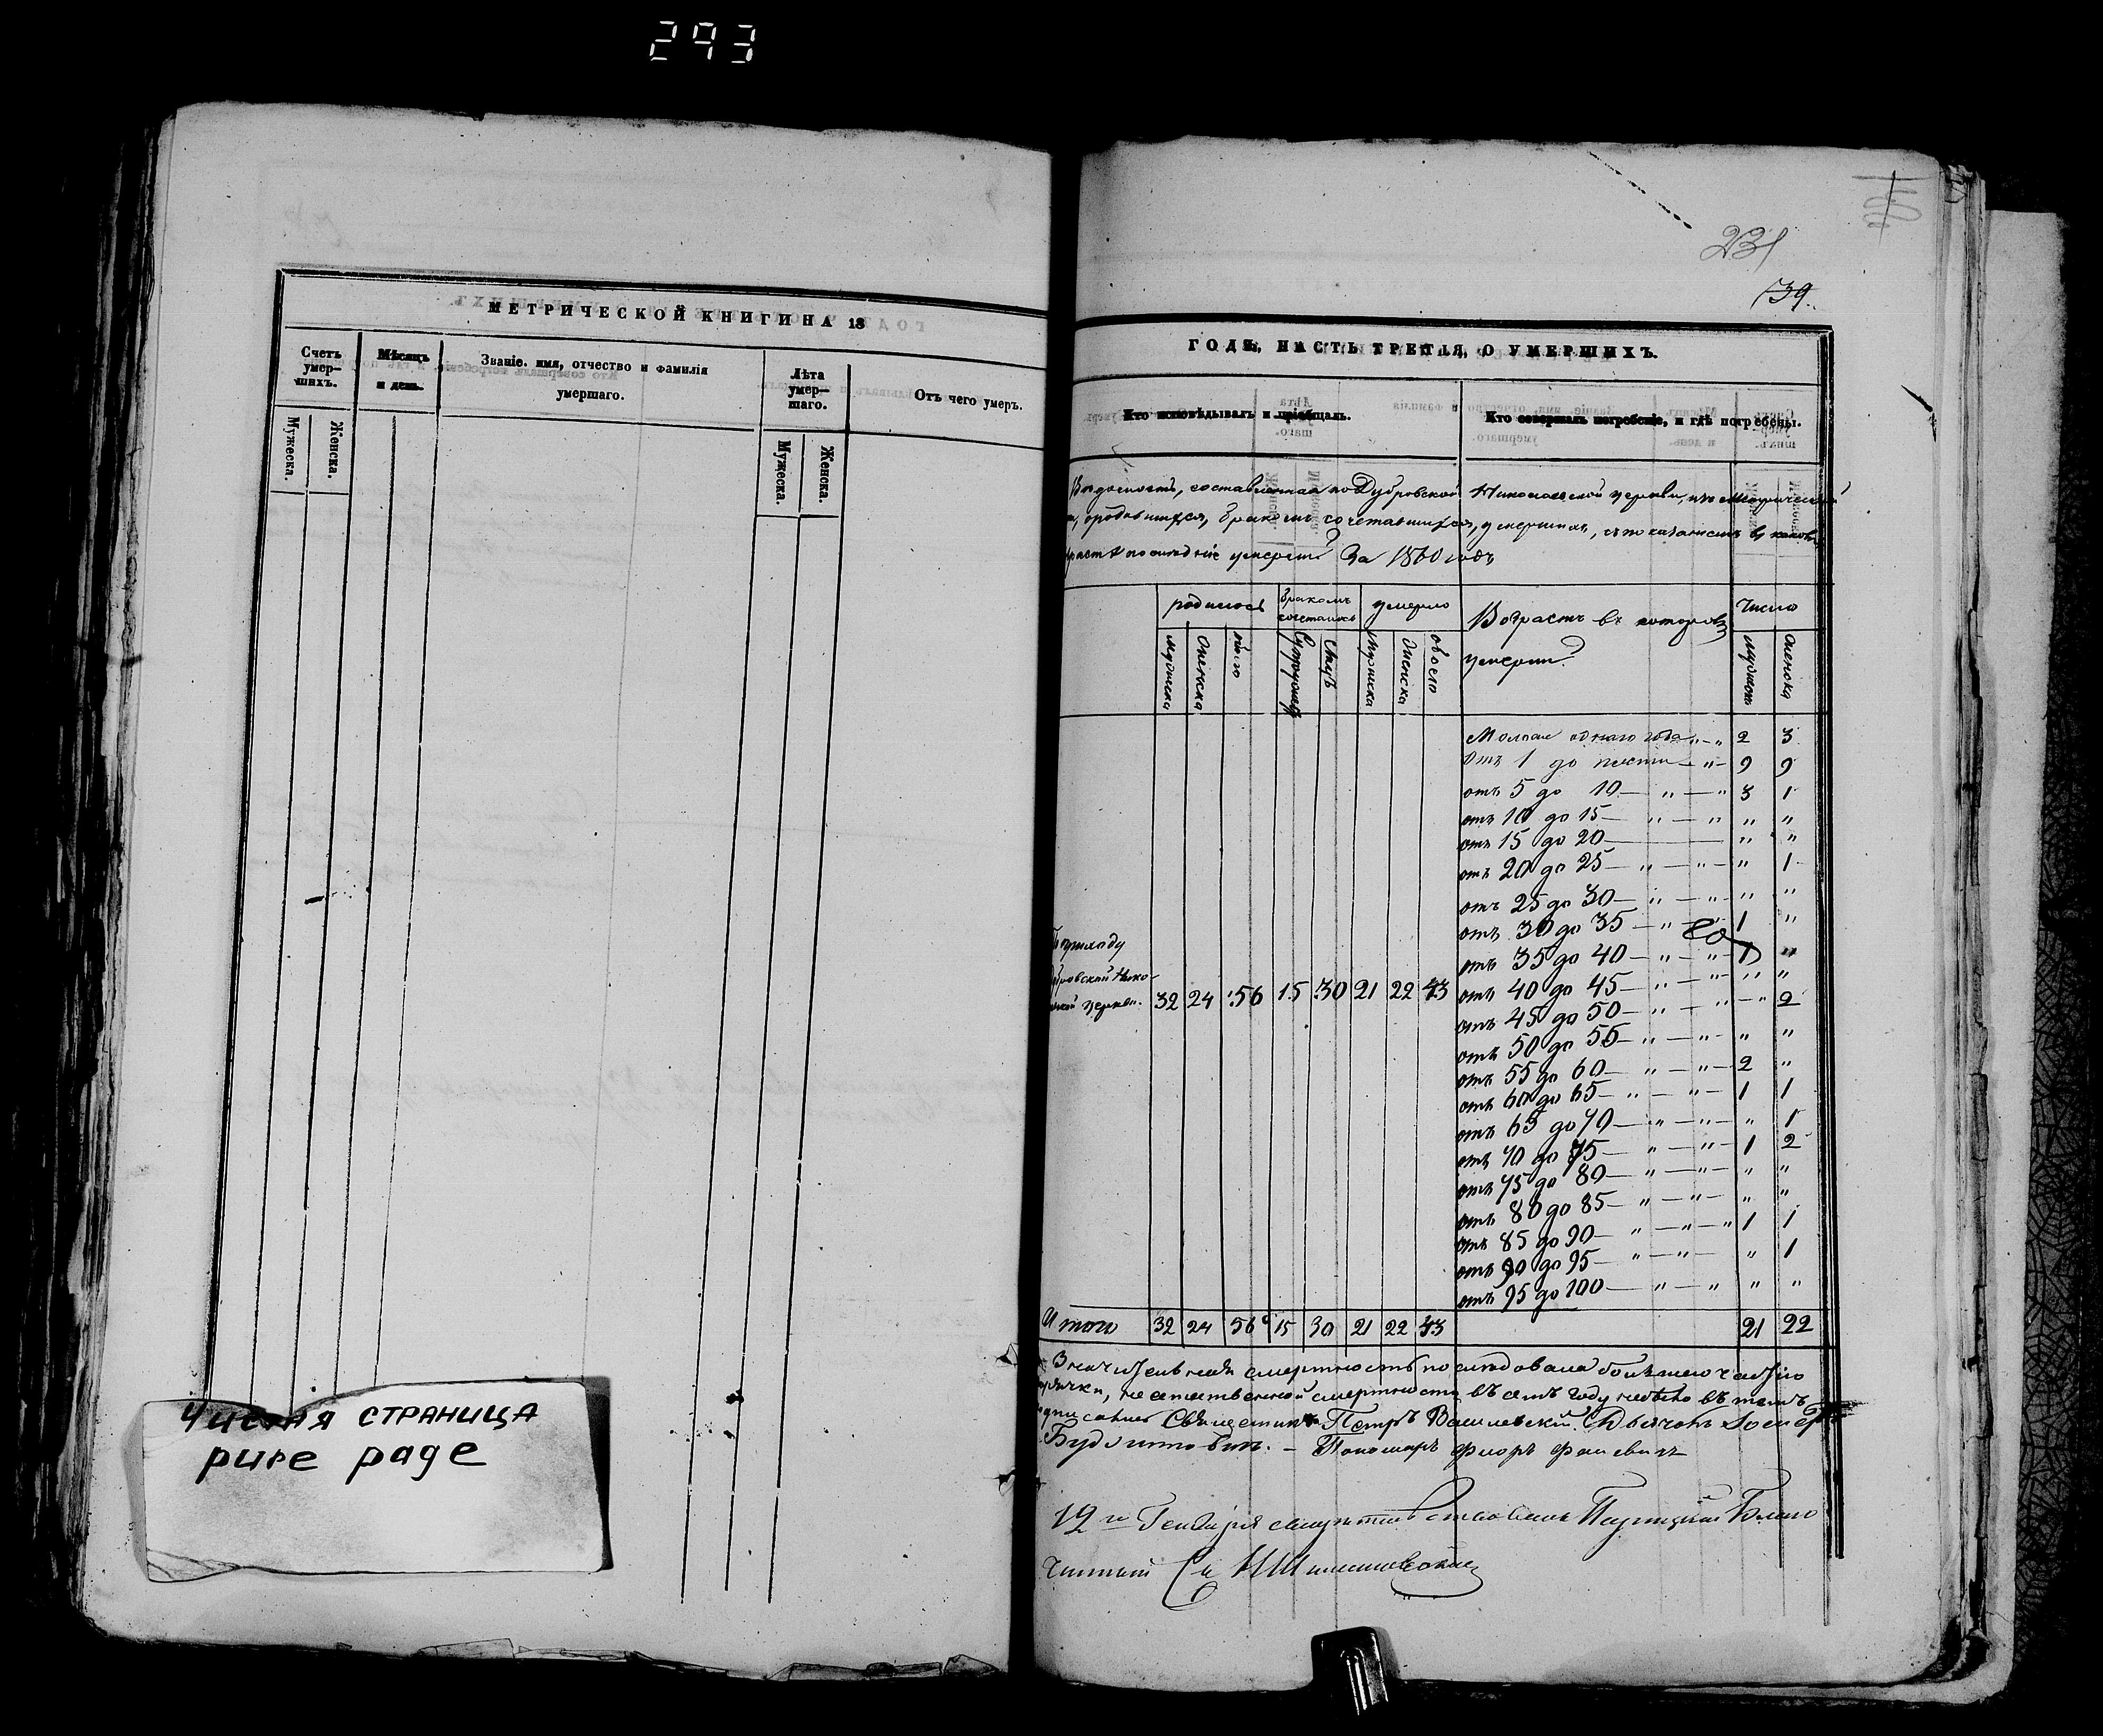 293
МЕТРИЧЕСКОЙ КНИГИ НА 18
Счетъ умер-шихъ.
Мѣсяцъ и день.
Званіе. имя, отчество и фамилія умершаго.
Лѣта умер-шаго.
Отъ чего умеръ.
Мужеска.
Женска.
Мужеска.
Женска.
ЧИСТАЯ СТРАНИЦА
pure page
231
39.
ГОДЪ, ЧАСТЬ ТРЕТІЯ, О УМЕРШИХЪ.
Кто исповѣдывалъ и пріобщалъ.
Кто совершалъ погребеніе, и гдѣ погребены.
составленная по Дубровской Николаевской церкви,
родившихся, бракомъ сочетавшихся, умершихъ, съ показаніемъ въ
послѣдніе умерли За 1860 годъ
родилось
бракомъ сочеталось
умерло
Возрастъ въ которомъ умерли
Число
мужеска
женска
обоего
мужеска
женска
Малѣе однаго года 2 3
Отъ 1 до пяти 9 9
отъ 5 до 10 3 1
отъ 10 до 15 " "
отъ 15 до 20 " "
отъ 20 до 25 " 1
отъ 25 до 30 " "
отъ 30 до 35 1 "
отъ 35 до 40 1 "
отъ 40 до 45 " "
отъ 45 до 50 " 2
отъ 50 до 55 " "
отъ 55 до 60 2 "
отъ 60 до 65 1 1
отъ 65 до 70 " 1
отъ 70 до 75 1 2
отъ 75 до 80 " "
отъ 80 до 85 " "
отъ 85 до 90 1 1
отъ 90 до 95 " 1
отъ 95 до 100 " "
По приходу
церкви. 32 24 56 15 30 21 22 43
Итого 32 24 56 15 30 21 22 43 21 22
Значительная смертность послѣдовала большею частію
смертности въ семъ году небыло въ темъ
Священникъ Петръ Василевскій. Дьячокъ
Пономарь Флоръ
12го Генваря свидѣтельствовалъ Паричскій Благо
чинный